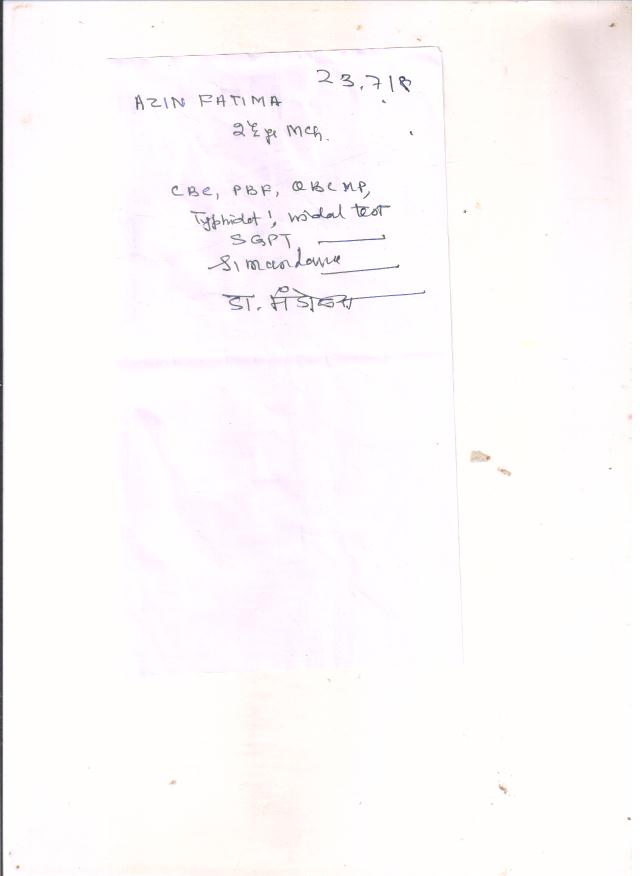 23.7/18
AZIN FATIMA
2½ yr Mch.
CBC, PBF, QBC MP,
Typhidot!, widal test
SGPT
डा.